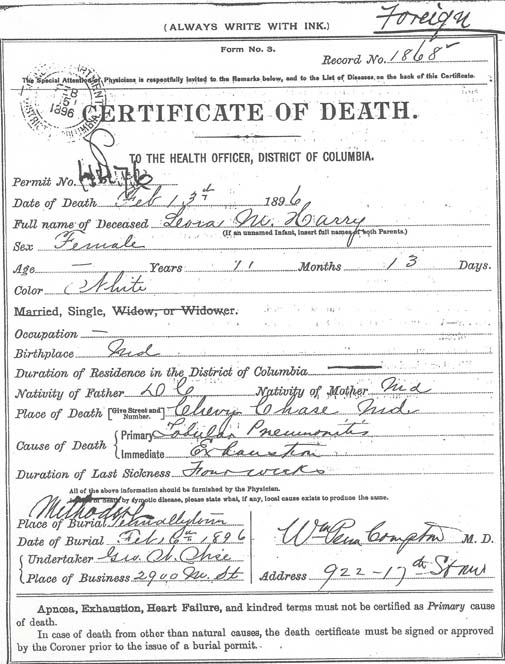 (ALWAYS WRITE WITH INK.)
Foreign
Form No. 3.
Record No. 1868
The Special Attention of Physicians is respectfully invited to the Remarks below, and to the List of Diseases on the back of this Certificate.
1896
CERTIFICATE OF DEATH.
TO THE HEALTH OFFICER, DISTRICT OF COLUMBIA.
Permit No.
Date of Death Feb 1896
Full name of Deceased Leora M. Harry
(If an unnamed Infant, insert full names of both Parents.)
Sex Female
Age — Years 11 Months 13 Days.
Color White
Married, Single, Widow, or Widower.
Occupation —
Birthplace Md
Duration of Residence in the District of Columbia
Nativity of Father D C Nativity of Mother Md
Place of Death [Give Street and Number.] Chevy Chase Md.
Cause of Death { Primary Lobular Pneumonitis
Immediate Exhaustion
Duration of Last Sickness Four weeks
All of the above information should be furnished by the Physician.
In case of death by zymotic disease, please state what, if any, local cause exists to produce the same.
Methodist
Place of Burial Tenallytown
Date of Burial Feb 6th 1896
Wm Penn Compton M. D.
{ Undertaker Geo.
Place of Business 2900 M. St
Address 922-17th St NW
Apnœa, Exhaustion, Heart Failure, and kindred terms must not be certified as Primary cause
of death.
In case of death from other than natural causes, the death certificate must be signed or approved
by the Coroner prior to the issue of a burial permit.